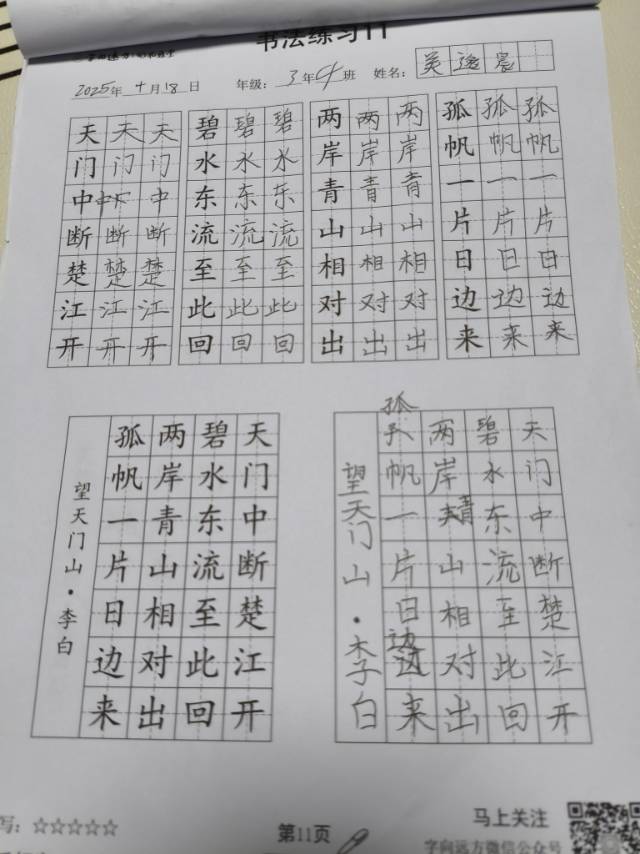 书法练习11
2025年 十月18日 年级: 3年4班 姓名: 吴逸晨
天门中断楚江开
天门中断楚江开
天门中断楚江开
碧水东流至此回
碧水东流至此回
碧水东流至此回
两岸青山相对出
两岸青山相对出
两岸青山相对出
孤帆一片日边来
孤帆一片日边来
孤帆一片日边来
天门中断楚江开
碧水东流至此回
两岸青山相对出
孤帆一片日边来
望天门山·李白
天门中断楚江开
碧水东流至此回
两岸青山相对出
孤帆一片日边来
望天门山·李白
写：☆☆☆☆☆
第11页
马上关注
字向远方微信公众号